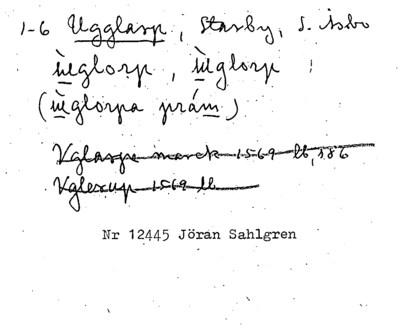 1-6 Ugglarp, Starby, S. Åsbo
ùglorp, ùglorp
(ùglorpa prám)
Vglarpe marck 1569 lb, 186
Vglerup 1569 lb
Nr 12445 Jöran Sahlgren